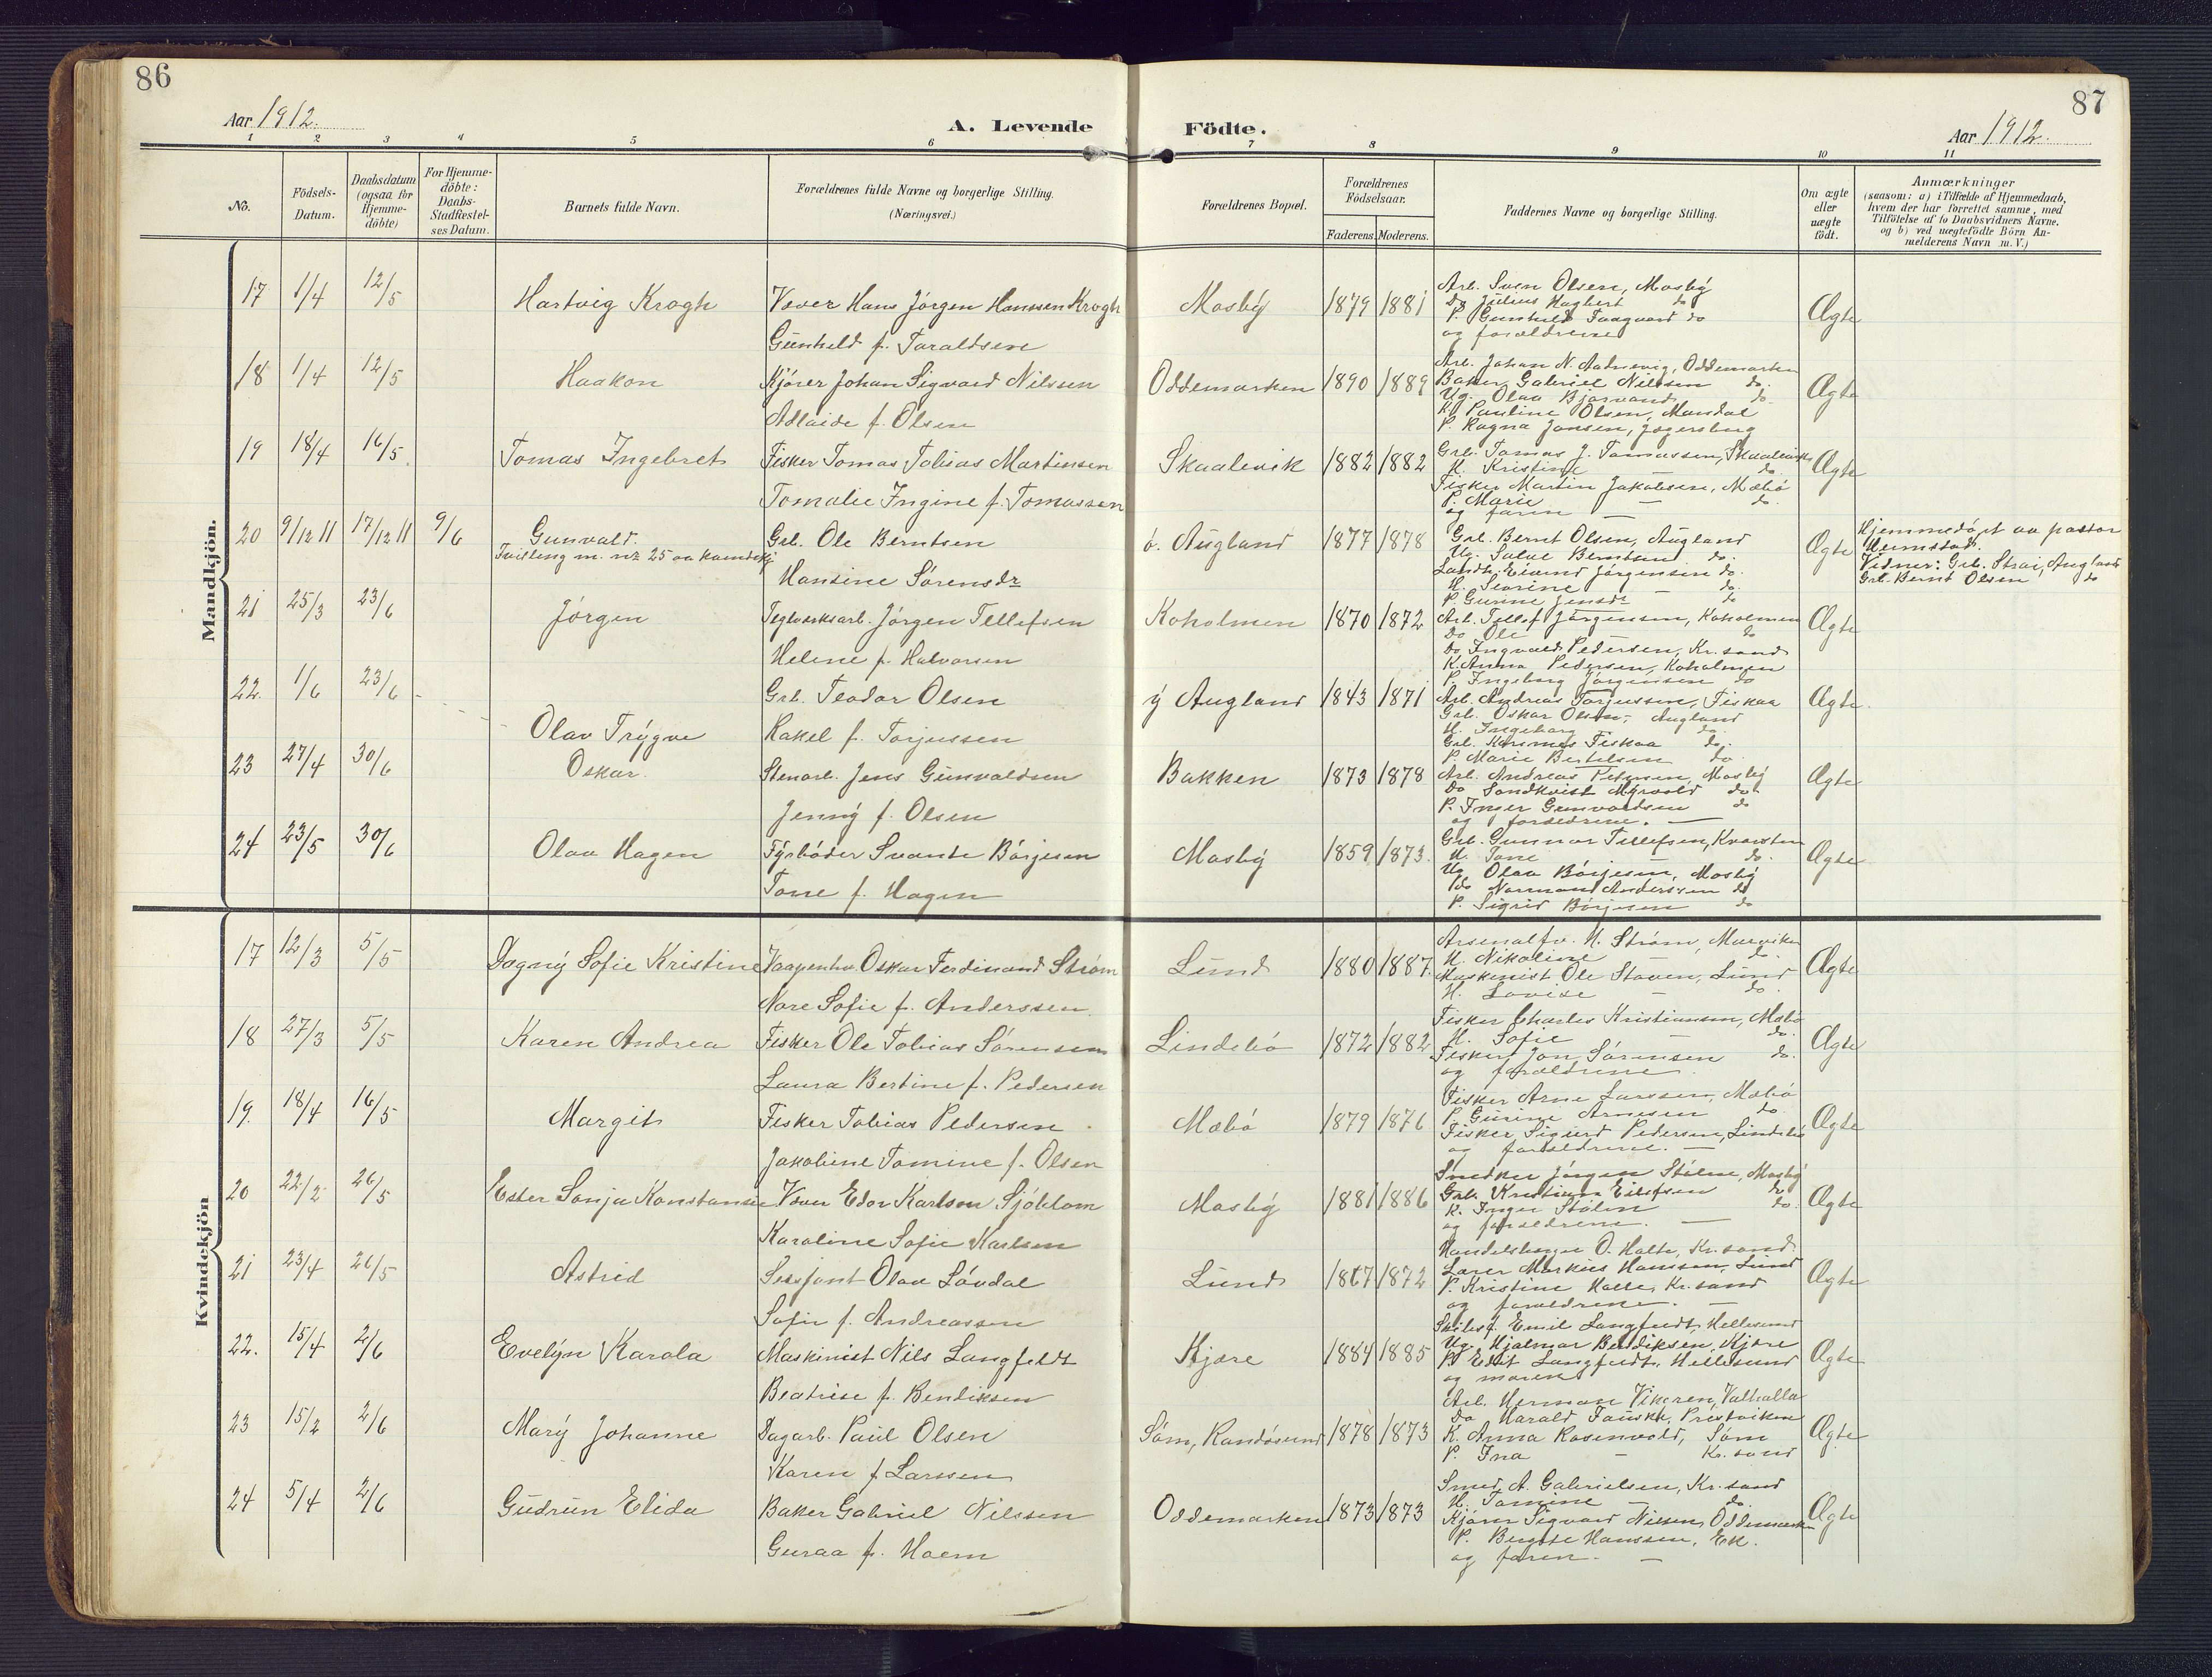 86
Aar 1912.
A. Levende
1 2 3 4 5 6
No.
Födsels-
Datum.
Daabsdatum
(ogsaa for
Hjemme-
döbte)
For Hjemme-
döbte:
Daabs-
Stadfæstel-
ses Datum.
Barnets fulde Navn.
Forældrenes fulde Navne og borgerlige Stilling.
(Næringsvei.)
Mandkjön.
17 1/4 12/5 Hartvig Krogh Væver Hans Jörgen Hanssen Krogh
Gunhild f. Taraldsen
18 1/4 12/5 Haakon Kjörer Johan Sigvard Nilssen
Adlaide f. Olsen
19 18/4 16/5 Tomas Ingebret Fisker Tomas Tobias Martinsen
Tomalie Ingine f. Tomassen
20 9/12 11 17/12 11 9/6 Gunvald. Grb. Ole Berntsen
Tvilling m. nr 25 av kvindekj
Hansine Sörensdr
21 25/3 23/6 Jörgen Teglverksarb. Jörgen Tellefsen
Helene f. Halvorsen
22. 1/6 23/6 Grb. Teodor Olsen
Olav Trygve Rakel f. Torjussen
23 27/4 30/6 Oskar. Stenarb. Jens Gunvaldsen
Jenny f. Olsen
24 23/5 30/6 Olav Hagen Fyrböder Svante Börjesen
Tone f. Hagen
Kvindekjön
17 12/3 5/5 Dagny Sofie Kristine Vaapenhv. Oskar Ferdinand Ström
Nore Sofie f. Anderssen
18 27/3 5/5 Karen Andrea Fisker Ole Tobias Sörensen
Laura Bertine f. Pedersen
19. 18/4 16/5 Margit Fisker Tobias Pedersen
Jakobine Tomine f. Olsen
20 22/2 26/5 Ester Sonja Konstanse Væver Edor Karlson Sjöblom
Karoline Sofie Karlsen
21 23/4 26/5 Astrid Sersjant Olav Lövdal
Sofie f. Andreassen
22. 15/4 2/6 Evelyn Karola Maskinist Nils Langfeldt
Beatrise f. Bendiksen
23 15/2 2/6 Mary Johanne Dagarb. Paul Olsen
Karen f. Larssen
24 5/4 2/6 Gudrun Elida Baker Gabriel Nilssen
Guraa f. Hoem
87
Födte.
Aar 1912.
7 8 9 10 11
Forældrenes Bopæl.
Forældrenes
Födselsaar.
Faderens. Moderens.
Faddernes Navne og borgerlige Stilling.
Om ægte
eller
uægte
födt.
Anmærkninger
(saasom: a) i Tilfælde af Hjemmedaab,
hvem der har forrettet samme, med
Tilföielse af to Daabsvidners Navne.
og b) ved uægtefödte Börn An-
melderens Navn m. V.)
Mosby 1879 1881 Ægte
Arb. Sven Olsen, Mosby
Do Julius Hagbert do
P. Gunhild Taagvard do
og forældrene
Oddemarken 1890 1889 Ægte
Arb. Johan N. Aatnevig, Oddemarken
Baker Gabriel Nilssen do.
Ug. Olav Bjorvand do.
K. Pauline Olsen, Mandal
P. Ragna Jansen, Jegersberg
Skaalevik 1882 1882 Ægte
Grb. Tomas J. Tomassen, Skaalevik
H. Kristine do.
Fisker Martin Jakobsen, Mæbö
P. Marie — do.
og faren —
ö. Augland 1877 1878 Ægte
Grb. Bernt Olsen, Augland
Ug. Salve Berntsen do.
Landh. Eivind Jörgensen do.
H. Severine — do.
P. Gurine Jensdr do
Hjemmedöpt av pastor
Vidner: Grb. Strai, Augland
Grb. Bernt Olsen do
Koholmen 1870 1872 Ægte
Arb. Tellef Jörgensen, Koholmen
Do Ole — do
Do Ingvald Pedersen, Kr.sand
K. Anna Pedersen, Koholmen
P. Ingeborg Jörgensen do
y Augland 1843 1871 Ægte.
Arb. Andreas Torjussen, Fiskaa
Grb. Oskar Olsen, Augland
H. Ingeborg do.
Grb. Rasmus Fiskaa do.
P. Marie Bertelsen do.
Bakken 1873 1878 Ægte
Arb. Andreas Petersen, Mosby
Do Sandkvist Myrvold do.
P. Inger Gunvaldsen do
og forældrene. —
Mosby 1859 1873. Ægte
Grb. Gunnar Tellefsen, Kvarsten
H. Tone — do.
Ug. Olav Börjesen, Mosby
Do Norman Anderssen do
P. Sigrid Börjesen do
Lund 1880 1887. Ægte
Arsenalfv. H. Ström, Marviken
H. Nikoline — do.
Maskinist Ole Staven, Lund
H. Lovise — do.
Lindebö 1872 1882 Ægte
Fisker Charles Kristiansen, Mæbö
H. Sofie — do.
Fisker Jon Sörensen do.
og forældrene.
Mæbö 1879 1876 Ægte
Fisker Arne Larssen, Mæbö
P. Gurine Arnesen do.
Fisker Sigurd Pedersen, Lindebö
og forældrene. —
Mosby 1881 1886 Ægte
Snedker Jörgen Stölen, Mosby
Grb. Kristian Eilefsen do
K. Inger Stölen do.
og forældrene. —
Lund 1867 1872 Ægte
Handelsborger O. Halle, Kr.sand
Lærer Markus Hanssen, Lund
P. Kristine Halle, Kr.sand
og forældrene. —
Kjære 1884 1885 Ægte
Skibsf. Emil Langfeldt, Hellesund
Ug. Hjalmar Bendiksen, Kjære
P. Edit Langfeldt, Hellesund
og moren
Söm, Randösund 1878 1873 Ægte
Arb. Herman Vikeren, Valhalla
Do Harald Fauske, Prestviken
K. Anna Rosenvold, Söm
P. Ina — Kr.sand
Oddemarken 1873 1873 Ægte
Smed A. Gabrielsen, Kr.sand
H. Tomine — do.
Kjörer Sigvard Nilsen, Oddemarken
P. Bergite Hanssen, Ek.
og faren. —